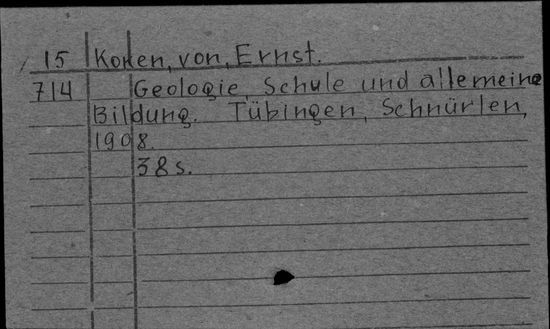 15 Koken, von, Ernst.
714 Geologie, Schule und allemeine
Bildung. Tübingen, Schnürlen,
1908.
38s.